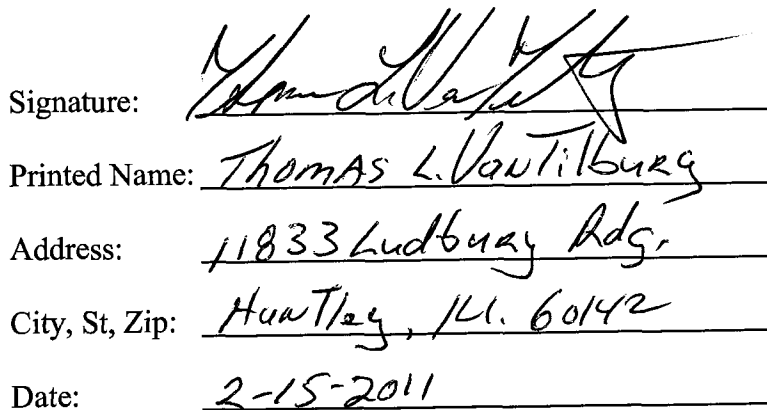 Signature: Thomas L. VanTilburg
Printed Name: Thomas L. VanTilburg
Address: 11833 Ludbury Rdg.
City, St, Zip: Huntley, Ill. 60142
Date: 2-15-2011